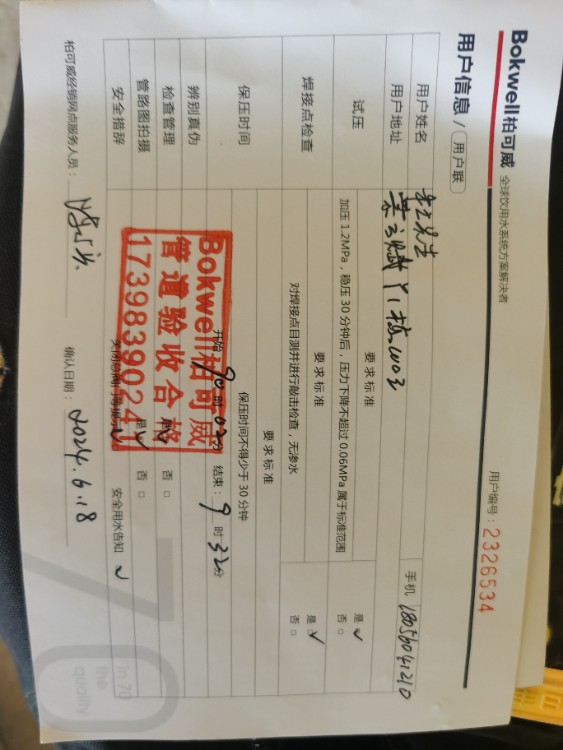 Bokwell柏可威 全球饮用水系统方案解决者
用户编号：2326534
用户信息/用户联
用户姓名 先生 手机 18056041210
用户地址 1栋1003
试压 要求标准 是 ✓
加压 1.2MPa，稳压 30 分钟后，压力下降不超过 0.06MPa 属于标准范围 否 □
焊接点检查 要求标准 是 ✓
对焊接点目测并进行敲击检查，无渗水 否 □
保压时间 要求标准
保压时间不得少于 30 分钟
开始：9 时 02分 结束：9 时 32分
辨别真伪
检查管理 否 □
管路图拍摄 是 ✓ 否 □
安全措辞 关闭总阀门等提示 ✓ 安全用水告知 ✓
Bokwell柏可威
管道验收合格
17398390247
柏可威经销网点服务人员：
确认日期：2024.6.18
In 70
the
quality